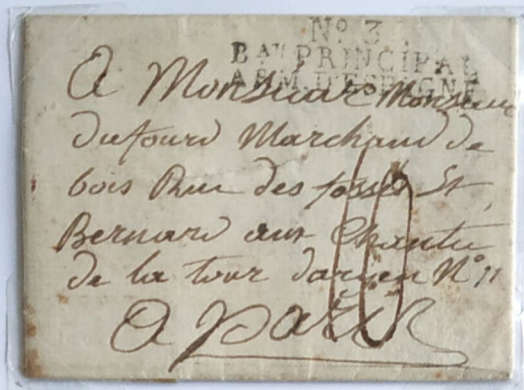 No 3
Bau PRINCIPAL
ARM. D'ESPAGNE
A Monsieur Monsieur
dufourd Marchand de
bois Rue des fossés St
Bernard aux Chantie
de la tour No 11
10
A paris